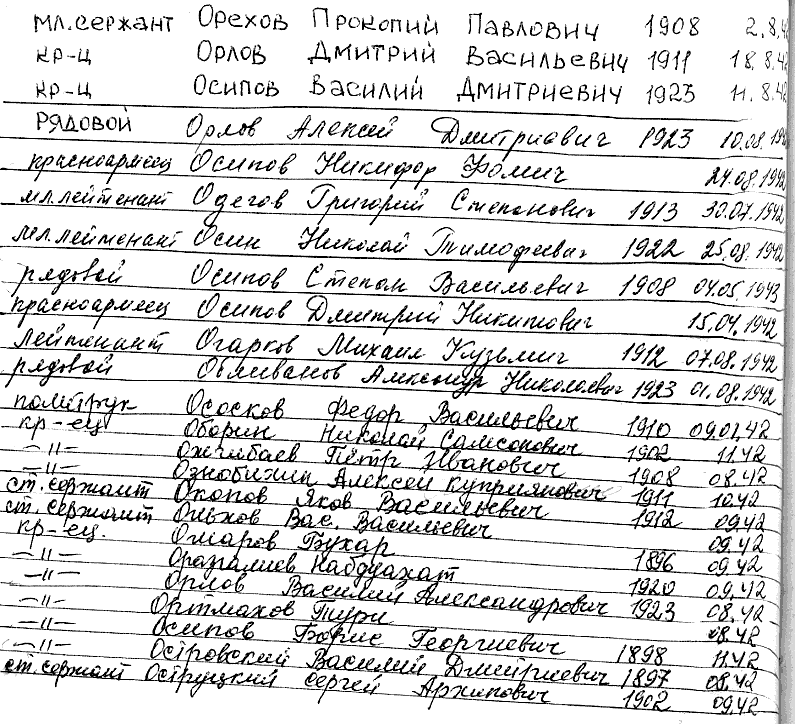 мл.сержант Орехов Прокопий Павлович 1908 2.8.42
кр-ц Орлов Дмитрий Васильевич 1911 18.8.42
кр-ц Осипов Василий Дмитриевич 1923 11.8.42
РЯДОВОЙ Орлов Алексей Дмитриевич 1923 10.08.1942
красноармеец Осипов Никифор Фомич 24.08.1942
мл.лейтенант Одегов Григорий Степанович 1913 30.07.1942
мл.лейтенант Осин Николай Тимофеевич 1922 25.08.1942
рядовой Осипов Степан Васильевич 1908 04.05.1943
красноармеец Осипов Дмитрий Никитович 15.04.1942
лейтенант Огарков Михаил Кузьмич 1912 07.08.1942
рядовой Александр Николаевич 1923 01.08.1942
политрук Ососков Федор Васильевич 1910 09.01.42
кр-ец Оборин Николай Самсонович 1902 11.42
-"- Петр Иванович 1908 08.42
-"- Ознобихин Алексей Куприянович 1911 10.42
ст.сержант Окопов Яков Васильевич 1912 09.42
ст.сержант Ольхов Вас. Васильевич 09.42
кр-ец. Омаров Бухар 1896 09.42
-"- 1920 09.42
-"- Орлов Василий Александрович 1923 08.42
-"- Ортмахов Тури 08.42
-"- Осипов Борис Георгиевич 1898 11.42
-"- Островский Василий Дмитриевич 1897 08.42
ст.сержант Оструцкий Сергей Архипович 1902 09.42